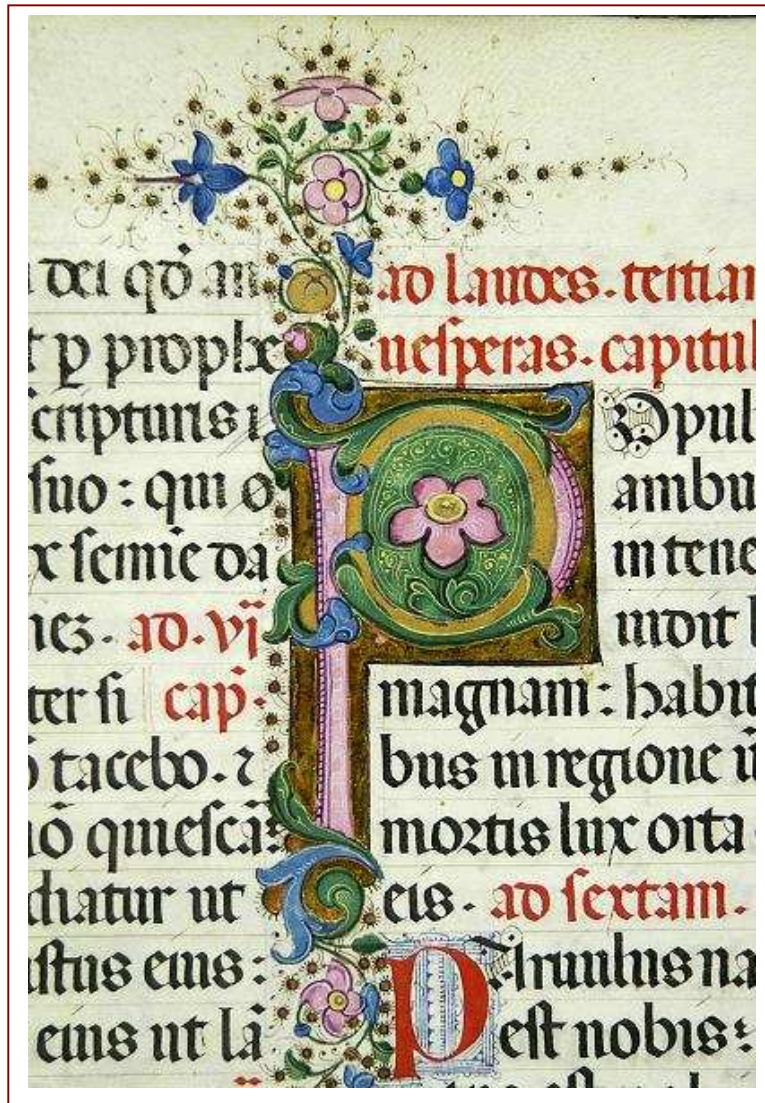 dei qđ an
t ꝑ prophe
scripturis i
suo : qui o
x semie da
nez. ad. vi
ter si cap̃.
õ tacebo. ⁊
nõ quiescã:
diatur ut
ustus eius :
eius ut lã
ad laudes. tertiam
uesperas. capitul
POpul
ambu
in tene
uidit l
magnam : habit
bus in regione ũ
mortis lux orta
eis. ad sextam.
PAruulus na
est nobis :